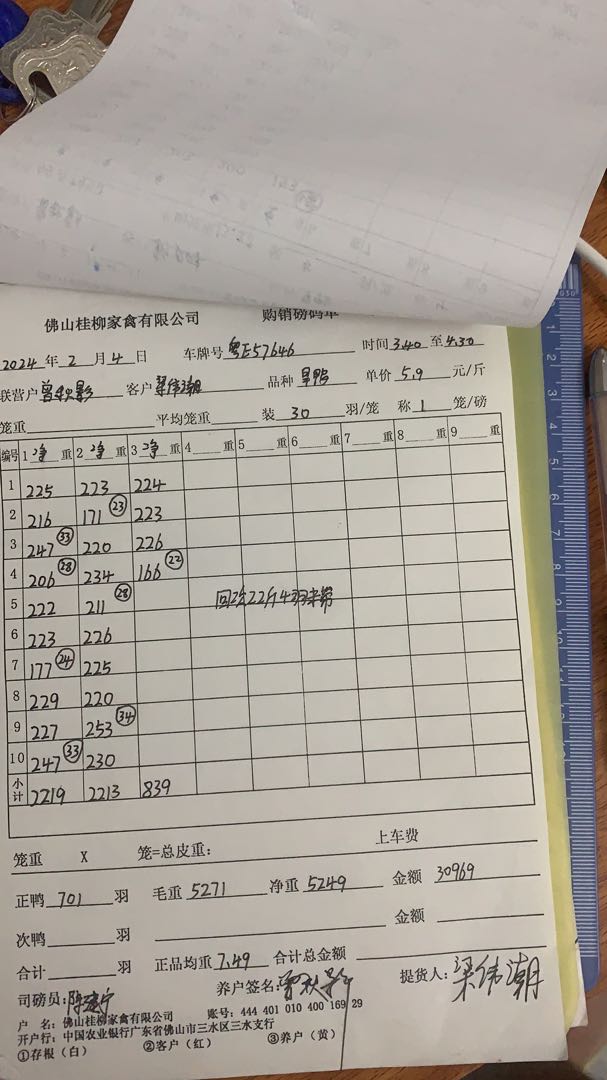 佛山桂柳家禽有限公司 购销磅码单
2024 年 2 月 4 日 车牌号 粤E57646 时间 3.40 至 4.30
联营户 客户 梁伟潮 品种 旱鸭 单价 5.9 元/斤
笼重 平均笼重 装 30 羽/笼 称 1 笼/磅
编号 1 净 重 2 净 重 3 净 重 4 重 5 重 6 重 7 重 8 重 9 重
1 225 223 224
2 216 171 (23) 223
3 247 (33) 220 226
4 206 (28) 234 166 (22)
5 222 211 (28) 回次22斤4羽未算
6 223 226
7 177 (24) 225
8 229 220
9 227 253 (34)
10 247 (33) 230
小计 2219 2213 839
笼重 X 笼=总皮重: 上车费
正鸭 701 羽 毛重 5271 净重 5249 金额 30969
次鸭 羽 金额
合计 羽 正品均重 7.49 合计总金额
司磅员: 养户签名: 提货人: 梁伟潮
户 名: 佛山桂柳家禽有限公司 账号: 444 401 010 400 169 29
开户行: 中国农业银行广东省佛山市三水区三水支行
①存根(白) ②客户(红) ③养户(黄)